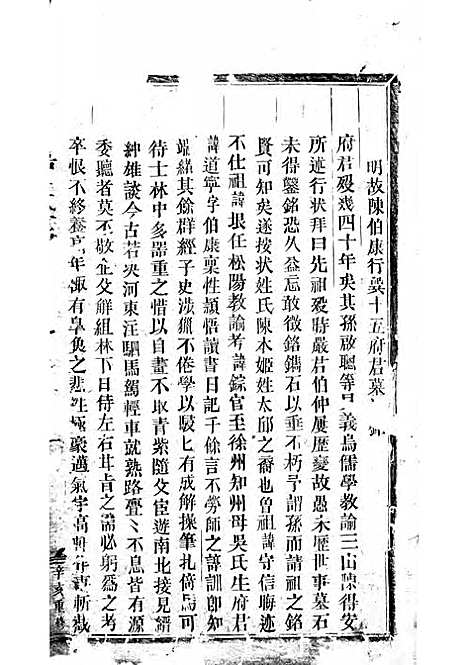 明故陳伯康行巽十五府君墓
府君歿幾四十年矣其孫啟聰等 義烏儒學教諭三山陳得安
所述行狀拜曰先祖歿時嚴君伯仲屢歷變故愚未歷世事墓石
未得鑿銘恐久益忘敢徵銘鐫石以垂不朽予謂孫而請祖之銘
賢可知矣遂按狀姓氏陳木姬姓太邱之裔也曾祖諱守信晦迹
不仕祖諱垠任松陽教諭若諱錝官至徐州知州母吳氏生府君
諱道寧字伯康稟性頴悟讀書日記千餘言不勞師之諱訓卽
端緒其餘群經子史涉獵不倦學以駸匕有成解操筆扎倚馬可
待士林中多器重之惜以自畫不取青紫隨父宦遊南北接見縉
紳雄談今古若央河東汪駟馬駕輕車就熟路亹〻不息皆有源
委聽者莫不敬企父解組林下日侍左右甘㫖之需必躬爲之考
卒恨不終養 年 有 奐之悲性 豪邁氣宇高 嶄
辛亥重修